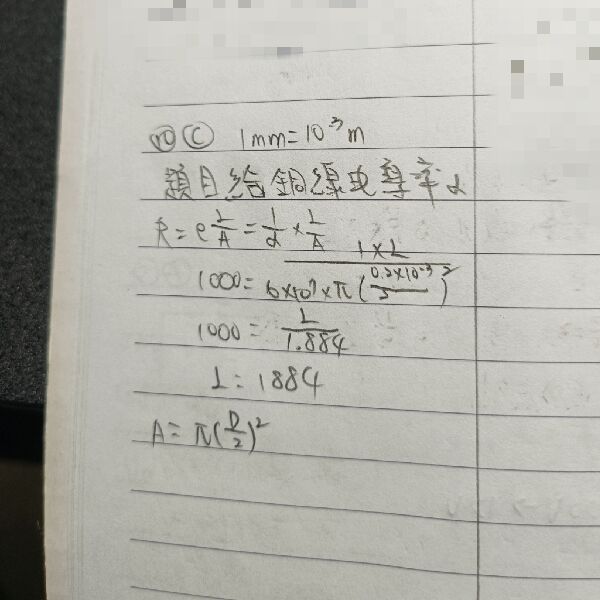 10 C 1mm=10⁻³m
題目給銅線电導率α
R=ρL/A=1/α×L/A
1000=1×L/6×10⁷×π(0.2×10⁻³/2)²
1000=L/1.884
L=1884
A=π(D/2)²